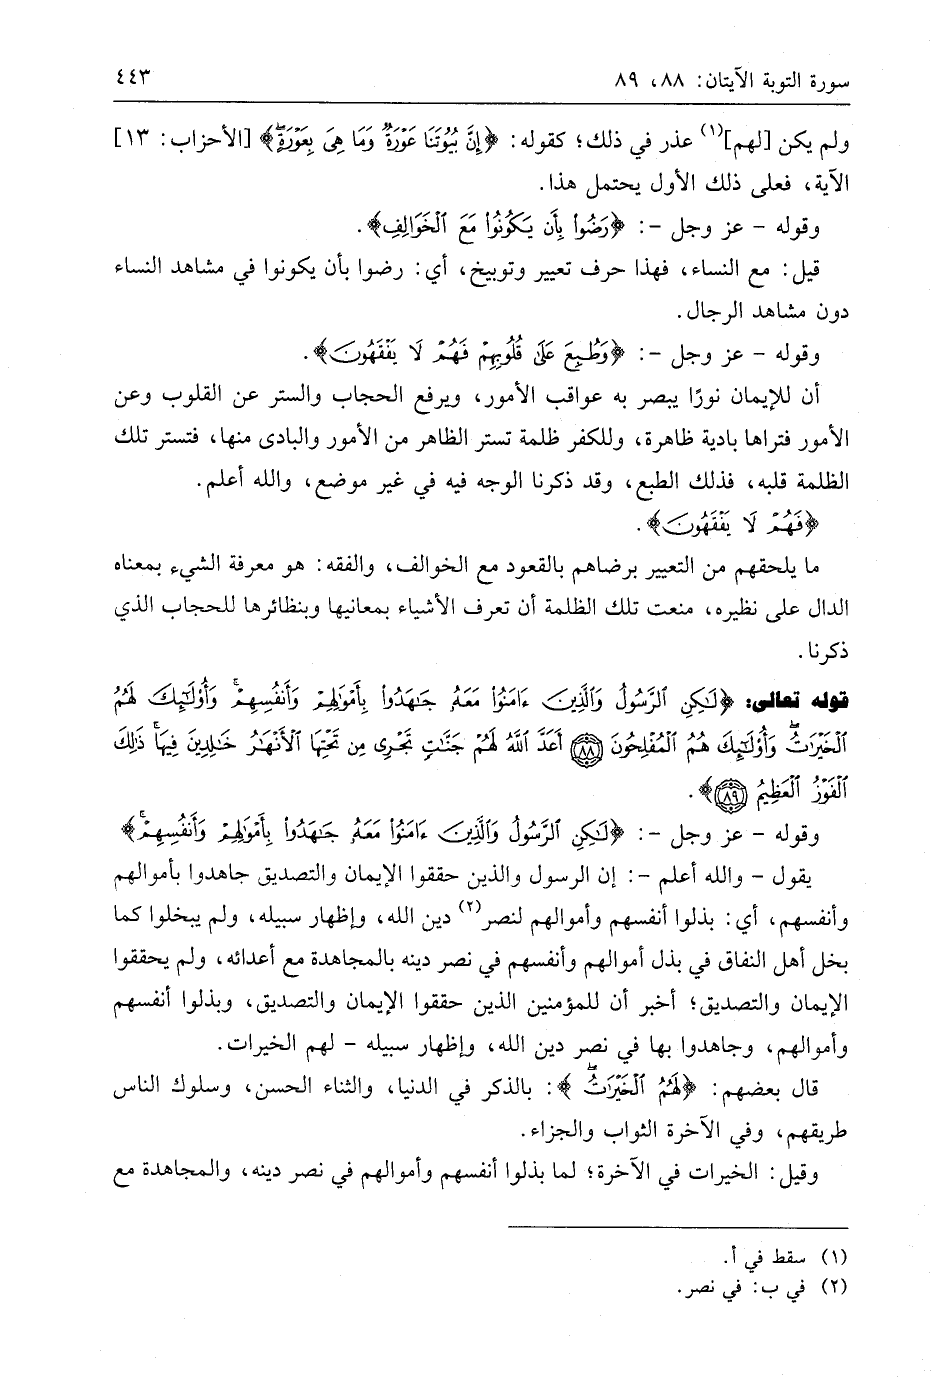 سورة التوبة الآيتان: ٨٨، ٨٩ ٤٤٣
ولم يكن [لهم](١) عذر في ذلك؛ كقوله: ﴿إِنَّ بُيُوتَنَا عَوْرَةٌ وَمَا هِىَ بِعَوْرَةٍ﴾ [الأحزاب: ١٣]
الآية، فعلى ذلك الأول يحتمل هذا.
وقوله - عز وجل -: ﴿رَضُوا۟ بِأَن يَكُونُوا۟ مَعَ ٱلْخَوَالِفِ﴾.
قيل: مع النساء، فهذا حرف تعيير وتوبيخ، أي: رضوا بأن يكونوا في مشاهد النساء
دون مشاهد الرجال.
وقوله - عز وجل -: ﴿وَطُبِعَ عَلَىٰ قُلُوبِهِمْ فَهُمْ لَا يَفْقَهُونَ﴾.
أن للإيمان نورًا يبصر به عواقب الأمور، ويرفع الحجاب والستر عن القلوب وعن
الأمور فتراها بادية ظاهرة، وللكفر ظلمة تستر الظاهر من الأمور والبادى منها، فتستر تلك
الظلمة قلبه، فذلك الطبع، وقد ذكرنا الوجه فيه في غير موضع، والله أعلم.
﴿فَهُمْ لَا يَفْقَهُونَ﴾.
ما يلحقهم من التعيير برضاهم بالقعود مع الخوالف، والفقه: هو معرفة الشيء بمعناه
الدال على نظيره، منعت تلك الظلمة أن تعرف الأشياء بمعانيها وبنظائرها للحجاب الذي
ذكرنا.
قوله تعالى: ﴿لَٰكِنِ ٱلرَّسُولُ وَٱلَّذِينَ ءَامَنُوا۟ مَعَهُۥ جَٰهَدُوا۟ بِأَمْوَٰلِهِمْ وَأَنفُسِهِمْ ۚ وَأُو۟لَٰٓئِكَ لَهُمُ
ٱلْخَيْرَٰتُ ۖ وَأُو۟لَٰٓئِكَ هُمُ ٱلْمُفْلِحُونَ ﴿٨٨﴾ أَعَدَّ ٱللَّهُ لَهُمْ جَنَّٰتٍ تَجْرِى مِن تَحْتِهَا ٱلْأَنْهَٰرُ خَٰلِدِينَ فِيهَا ۚ ذَٰلِكَ
ٱلْفَوْزُ ٱلْعَظِيمُ ﴿٨٩﴾﴾.
وقوله - عز وجل -: ﴿لَٰكِنِ ٱلرَّسُولُ وَٱلَّذِينَ ءَامَنُوا۟ مَعَهُۥ جَٰهَدُوا۟ بِأَمْوَٰلِهِمْ وَأَنفُسِهِمْ ۚ﴾
يقول - والله أعلم -: إن الرسول والذين حققوا الإيمان والتصديق جاهدوا بأموالهم
وأنفسهم، أي: بذلوا أنفسهم وأموالهم لنصر(٢) دين الله، وإظهار سبيله، ولم يبخلوا كما
بخل أهل النفاق في بذل أموالهم وأنفسهم في نصر دينه بالمجاهدة مع أعدائه، ولم يحققوا
الإيمان والتصديق؛ أخبر أن للمؤمنين الذين حققوا الإيمان والتصديق، وبذلوا أنفسهم
وأموالهم، وجاهدوا بها في نصر دين الله، وإظهار سبيله - لهم الخيرات.
قال بعضهم: ﴿لَهُمُ ٱلْخَيْرَٰتُ ۖ﴾: بالذكر في الدنيا، والثناء الحسن، وسلوك الناس
طريقهم، وفي الآخرة الثواب والجزاء.
وقيل: الخيرات في الآخرة؛ لما بذلوا أنفسهم وأموالهم في نصر دينه، والمجاهدة مع
(١) سقط في أ.
(٢) في ب: في نصر.